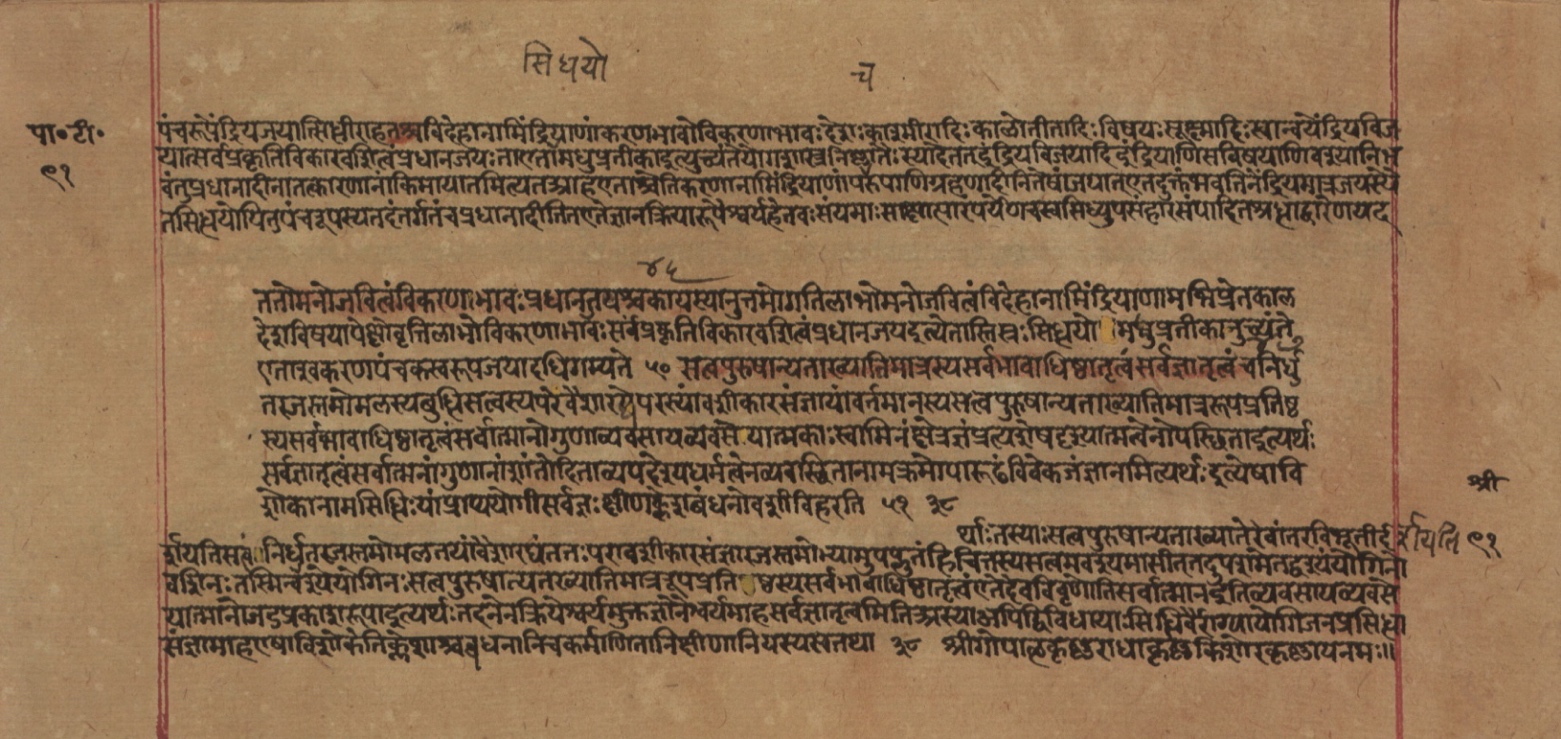 सिधयो च
पा॰ टी॰
९१
पंचरूपेंद्रियजयात्सिद्धीराहतअविदेहानामिंद्रियाणांकरणभावोविकरणाभावःदेशःकाश्मीरादिःकालोतीतादिःविषयःसूक्ष्मादिःस्वान्वयेंद्रियविज
यात्सर्वप्रकृतिविकारवशित्वंप्रधानजयःताएतामधुप्रतीकाइत्युच्यंतेयोगशास्त्रनिष्णातैःस्यादेतत्इंद्रियविजयादिइंद्रियाणिसविषयाणिवश्यानिभ
वंतुप्रधानादीनांतत्कारणानांकिमायातमित्यतआहएताश्चेतिकरणानामिंद्रियाणांपंचरूपाणिग्रहणादीनितेषांजयातएतदुक्तंभवतिनेंद्रियमात्रजयस्यै
तसिधयोपितुपंचरूपस्यतदंतर्गतंचप्रधानादीतितएतेज्ञानक्रियारूपैश्वर्यहेतवःसंयमाःसाक्षात्पारंपर्येणचस्वसिध्युपसंहारसंपादितश्रद्धाद्वारेणयद
४५
ततोमनोजवित्वंविकरणाभावःप्रधानजयश्चकायस्यानुत्तमोगतिलाभोमनोजवित्वंविदेहानामिंद्रियाणामभिप्रेतकाल
देशविषयापेक्षोवृत्तिलाभोविकरणाभावःसर्वप्रकृतिविकारवशित्वंप्रधानजयइत्येतास्तिस्रःसिधयो मधुप्रतीकाउच्यंते
एताश्वकरणपंचकस्वरूपजयादधिगम्यंते ५० सत्वपुरुषान्यताख्यातिमात्रस्यसर्वभावाधिष्ठातृत्वंसर्वज्ञातृत्वंचनिर्धु
तरजस्तमोमलस्यबुधिसत्वस्यपरेवैशारद्येपरस्यांवशीकारसंज्ञायांवर्तमानस्यसत्वपुरुषान्यताख्यातिमात्ररूपप्रतिष्ठ
स्यसर्वभावाधिष्ठातृत्वंसर्वात्मानोगुणाव्यवसायव्यवसेयात्मकाःस्वामिनंक्षेत्रज्ञंप्रत्यशेषदृश्यात्मत्वेनोपस्छिताइत्यर्थः
सर्वज्ञातृत्वंसर्वात्मनांगुणानांशांतोदिताव्यपदेश्यधर्मत्वेनव्यवस्छितानामक्रमोपारूढंविवेकजंज्ञानमित्यर्थःइत्येषावि
शोकानामसिधिःयांप्राप्ययोगीसर्वज्ञःक्षीणक्लेशबंधनोवशीविहरति ५१ ३८
श्री
र्थाःतस्याःसत्वपुरुषान्यताख्यातेरवांतरविभूतीर्द र्शयति ९१
र्शयतिसत्वं निर्धुतरजस्तमोमलतयांवैशारद्यंततःपरावशीकारसंज्ञारजस्तमोभ्यामुपप्लुतंहिचित्तस्यसत्वमवश्यमासीत्तदुपशमेतद्वश्यंयोगिनो
वशिनःतस्मिन्वश्येयोगिनःसत्वपुरुषान्यतख्यातिमात्ररूपप्रतिष्ठस्यसर्वभावाधिष्ठातृत्वंएतदेवविवृणोतिसर्वात्मानइतिव्यवसायव्यवसे
यात्मानोजडप्रकाशरूपाइत्यर्थःतदनेनक्रियैश्वर्यमुक्तंज्ञानैश्वर्यमाहसर्वज्ञातृत्वमितिअस्याअपिद्विविधायाःसिधेर्वैराग्यायोगिजनप्रसिधां
संज्ञामाहएषाविशोकेतिक्लेशाश्वबंधनानिचकर्माणितानिक्षीणानियस्यसतथा ३८ श्रीगोपालकृष्णराधाकृष्णकिशोरकृष्णायनमः॥